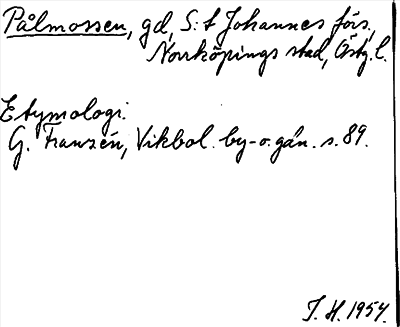 Pålmossen, gd, S:t Johannes förs.,
Norrköpings stad, Östg.l.
Etymologi.
G. Franzén, Vikbol. by-o. gån. s. 89.
J. H. 1954.